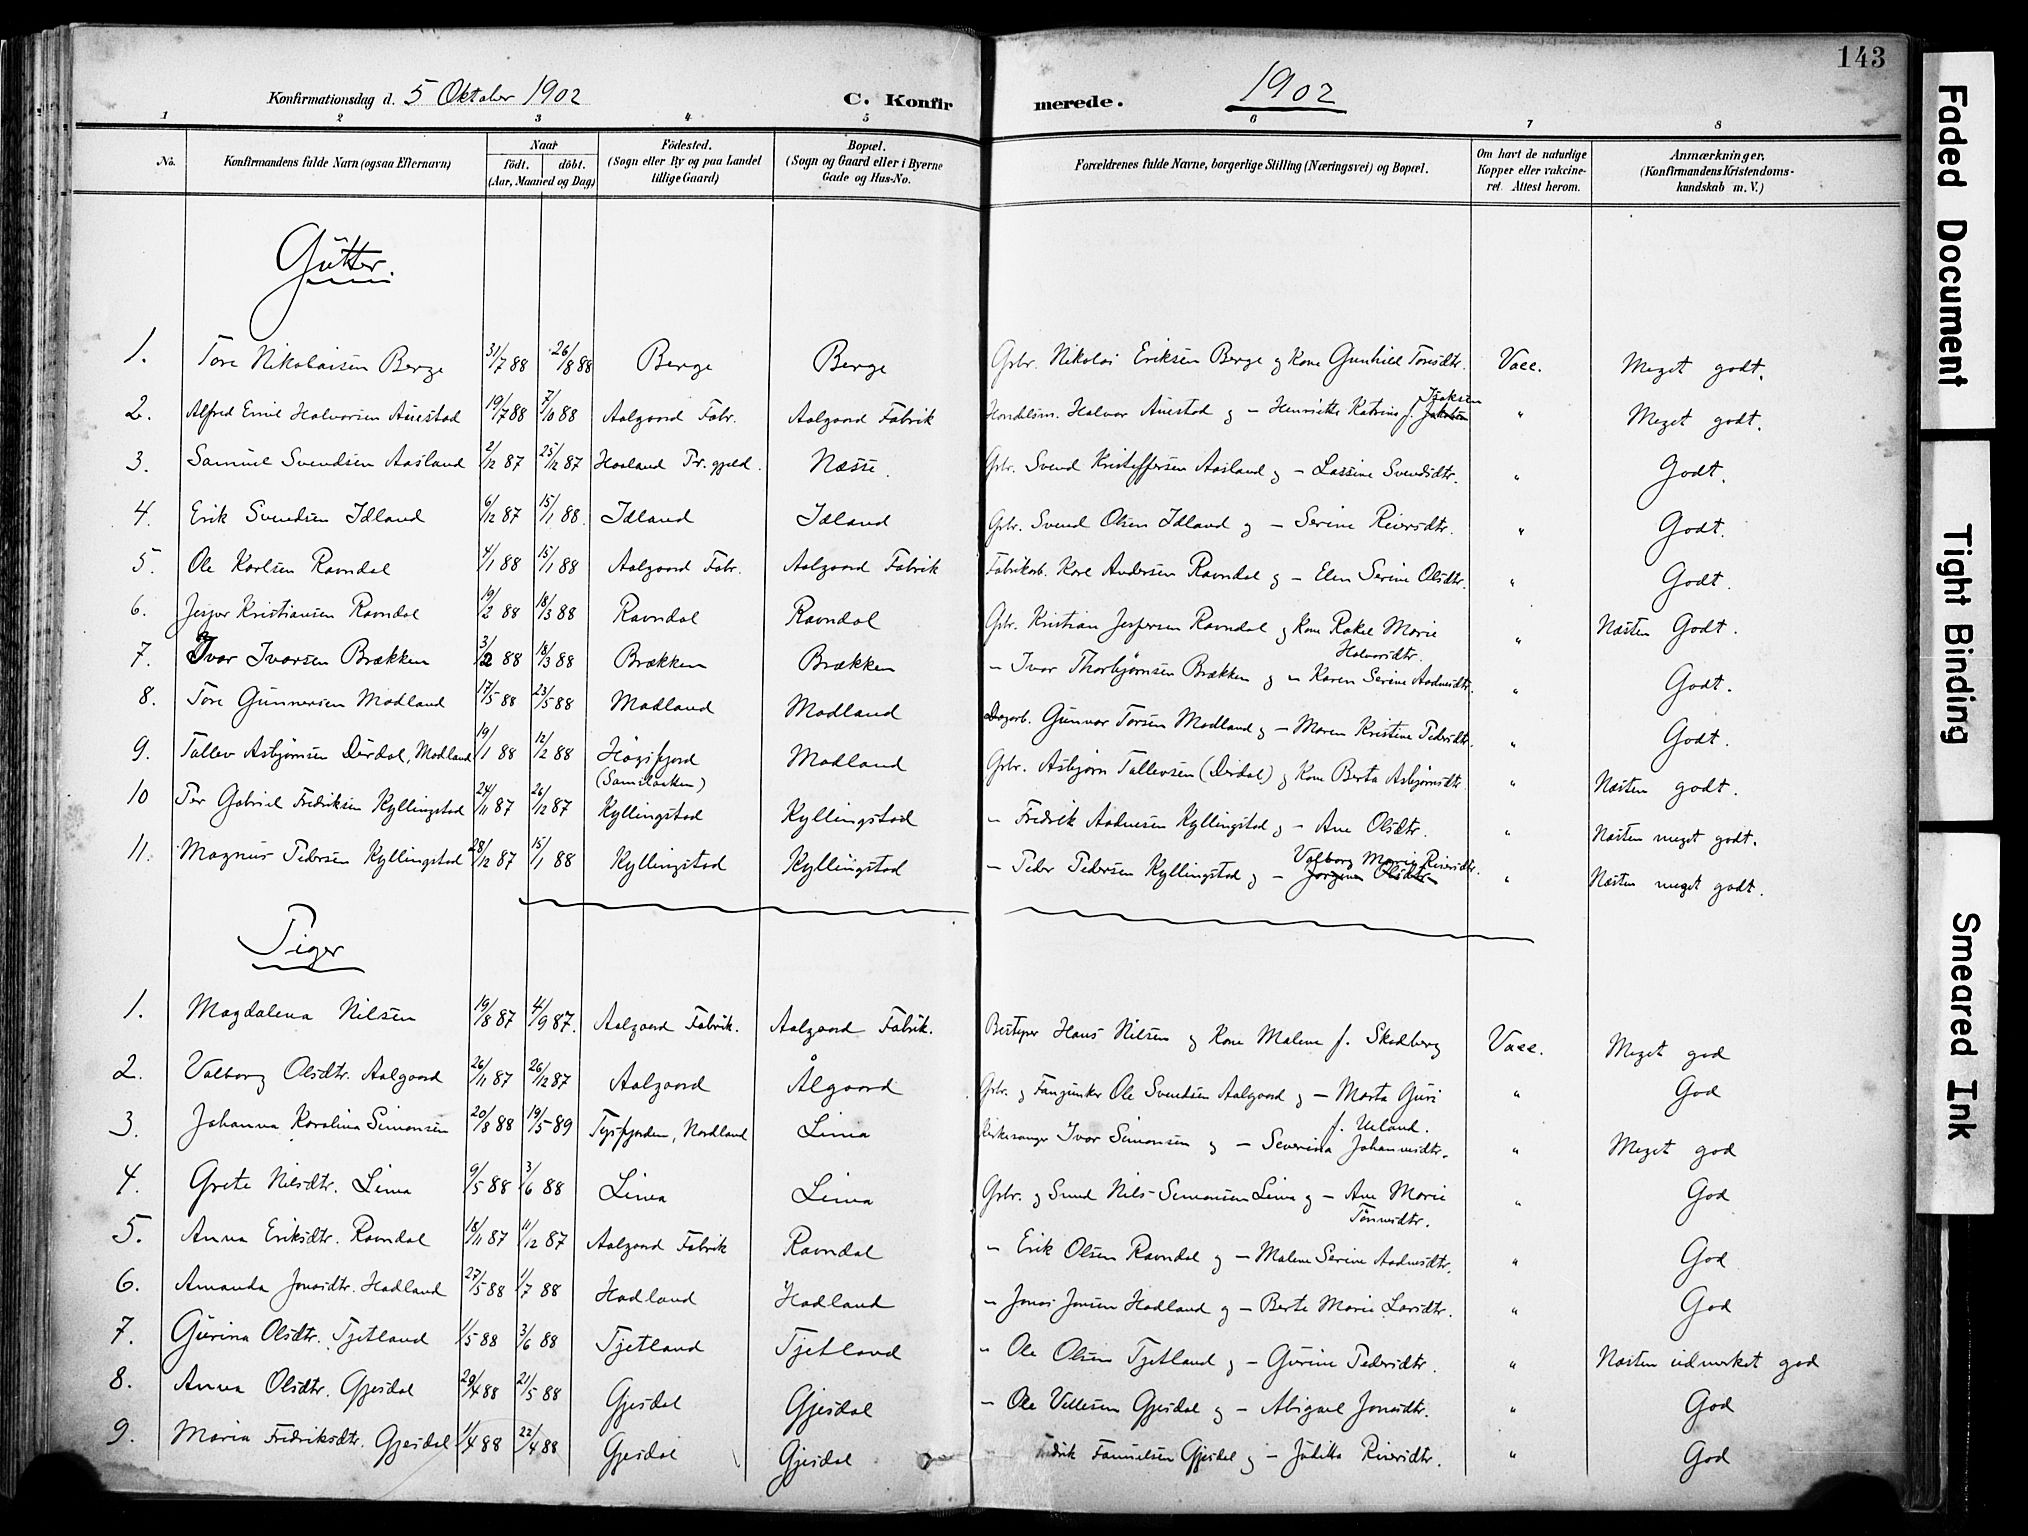 143
Konfirmationsdag d. 5 Oktober 1902 C. Konfirmerede. 1902
1 2 3 4 5 6 7 8
No. Konfirmandens fulde Navn (ogsaa Efternavn) Naar født. døbt. (Aar, Maaned og Dag) Fødested. (Sogn eller By og paa Landet tillige Gaard) Bopæl. (Sogn og Gaard eller i Byerne Gade og Hus-No. Forældrenes fulde Navne, borgerlige Stilling (Næringsvei) og Bopæl. Om havt de naturlige Kopper eller vakcineret. Attest herom. Anmærkninger. (Konfirmandens Kristendomskundskab m. V.)
Gutter.
1. Tore Nikolaisen Berge 31/7 88 26/8 88 Berge Berge Gbr. Nikolai Eriksen Berge og Kone Gunhild Toresdtr. Vacc. Meget godt.
2. Alfred Emil Halvorsen Auestad 19/7 88 7/10 88 Aalgaard Fabr. Aalgaard Fabrik Handelsm. Halvor Auestad og — Henriette Katrine f. Jakobsen Isaksen " Meget godt.
3. Samuel Svendsen Aasland 2/12 87 25/12 87 Haaland Pr. gjeld. Næsse. Gbr. Svend Kristoffersen Aasland og — Lassine Svendsdtr. " Godt.
4. Erik Svendsen Idland 6/12 87 15/1 88 Idland Idland Gbr. Svend Olsen Idland og — Serine Reiersdtr. " Godt.
5. Ole Karlsen Ravndal 4/1 88 15/1 88 Aalgaard Fabr. Aalgaard Fabrik Fabrikarb. Karl Andersen Ravndal og — Elen Serine Olsdtr. " Godt.
6. Jesper Kristiansen Ravndal 19/2 88 18/3 88 Ravndal Ravndal Gbr. Kristian Jespersen Ravndal og Kone Rakel Marie Halvorsdtr. " Næsten Godt.
7. Ivar Ivarsen Brækken 3/2 88 18/3 88 Brækken Brækken — Ivar Thorbjørnsen Brækken og — Karen Serine Aadnesdtr. " Godt.
8. Tore Gunnarsen Madland 17/5 88 23/5 88 Madland Madland Dagarb. Gunnar Torsen Madland og — Maren Kristine Pedersdtr. " Godt.
9. Tallev Asbjørnsen Dirdal, Madland 19/1 88 12/2 88 Høgsfjord Madland Gbr. Asbjørn Tallevsen (Dirdal) og Kone Berta Asbjørnsdtr. " Næsten godt.
10 Per Gabriel Fredriksen Kyllingstad 24/11 87 26/12 87 Kyllingstad Kyllingstad — Fredrik Aadnesen Kyllingstad og — Ane Olsdtr. " Næsten meget godt.
11. Magnus Pedersen Kyllingstad 28/12 87 15/1 88 Kyllingstad Kyllingstad — Peder Pedersen Kyllingstad og — Jorgine Olsdtr. Valborg Marie Reiersdtr. " Næsten meget godt.
Piger
1. Magdalena Nilsen 19/8 87 4/9 87. Aalgaard Fabrik. Aalgaard Fabrik. Bestyrer Hans Nilsen og Kone Malene f. Skadberg Vacc. Meget god
2. Valborg Olsdtr. Aalgaard 26/11 87 26/12 87 Aalgaard Ålgaard Gbr. og Fanejunker Ole Svendsen Aalgaard og — Marta Guri f. Ueland. " God
3. Johanna Karolina Simonsen 20/8 88 19/5 89 Tysfjorden, Nordland Lima Kirkesanger Ivar Simonsen og — Severina Johannesdtr. " Meget god
4. Grete Nilsdtr. Lima 9/5 88 3/6 88 Lima Lima Gbr. og Smed Nils Simonsen Lima og — Ane Marie Tønnesdtr. " God
5. Anna Eriksdtr. Ravndal 18/11 87 11/12 87 Aalgaard Fabrik Ravndal — Erik Olsen Ravndal og — Malene Serine Aadnesdtr. " God
6. Amanda Jonasdtr. Hadland 27/5 88 1/7 88 Hadland Hadland — Jonas Jonsen Hadland og — Berte Marie Larsdtr. " God
7. Gurina Olsdtr. Tjetland 1/5 88 3/6 88 Tjetland Tjetland " Ole Olsen Tjetland og — Gurine Pedersdtr. " Næsten udmerket god
8. Anna Olsdtr. Gjesdal 29/4 88 21/5 88 Gjesdal Gjesdal — Ole Villesen Gjesdal og — Abigael Jonasdtr. " God
9. Maria Fredriksdtr. Gjesdal 1/4 88 22/4 88 Gjesdal Gjesdal Fredrik Samuelsen Gjesdal og — Juditta Reiersdtr. " God
Faded Document
Tight Binding
Smeared Ink